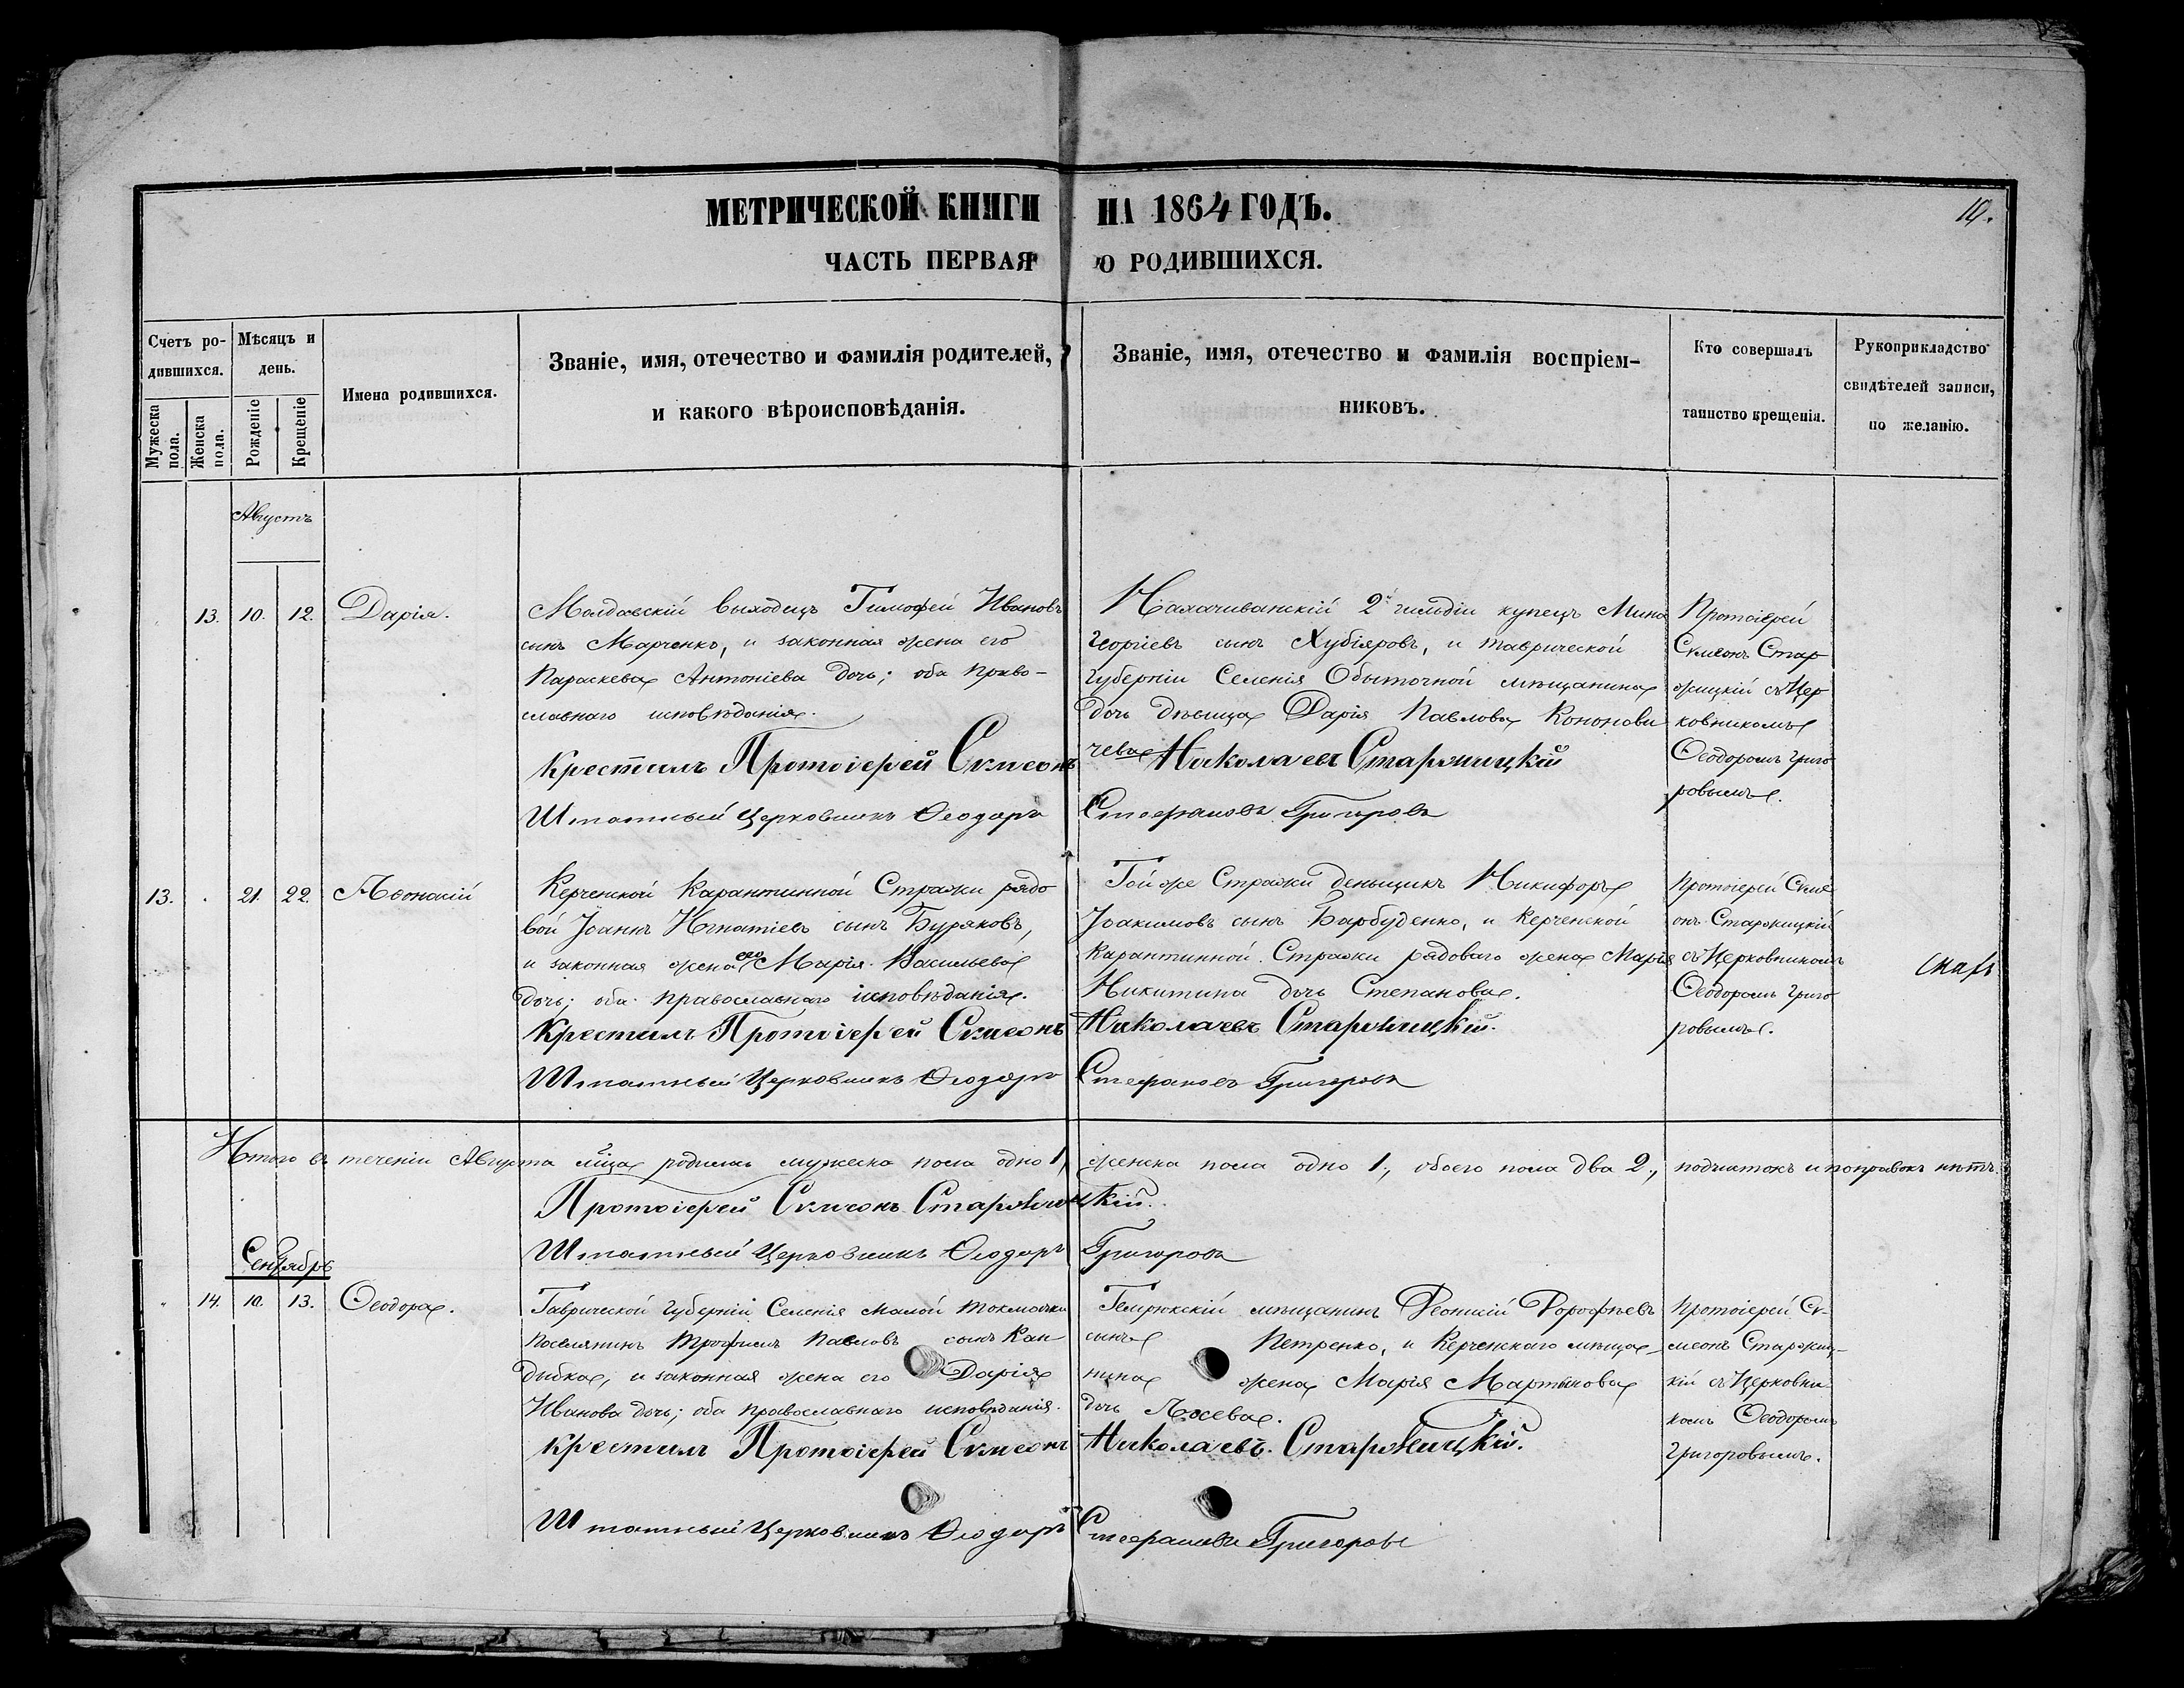 МЕТРИЧЕСКОЙ КНИГИ НА 1864 ГОДЪ.
ЧАСТЬ ПЕРВАЯ О РОДИВШИХСЯ.
Счетъ ро-
дившихся.
Мужеска пола.
Женска пола.
Мѣсяцъ и
день.
Рожденіе
Крещеніе
Имена родившихся.
Званіе, имя, отечество и фамилія родителей,
и какого вѣроисповѣданія.
Званіе, имя, отечество и фамилія воспріем-
никовъ.
Кто совершалъ
таинство крещенія.
Рукоприкладство
свидѣтелей записи,
по желанію.
Августъ
13. 10. 12. Дарія.
Молдавскій выходецъ Тимофей Ивановъ
сынъ Марченко, и законная жена его
Параскева Антоніева дочь; оба право-
славнаго исповѣданія.
Крестилъ Протоіерей Симеонъ Николаевъ Старожицкій
Штатный Церковникъ Ѳеодоръ Стефановъ Григоровъ
Нахачиванскій 2й гильдіи купецъ Мина
Георгіевъ сынъ Хубіяровъ, и таврической
Губерніи Селенія Обыточной мѣщанина
дочь дѣвица Дарія Павлова Кононови
чева
Протоіерей
Симеонъ Стар
жицкій съ Цер
ковникомъ
Ѳеодоромъ Григо
ровымъ.
13. 21. 22. Аѳонасій
Керченской Карантинной Стражи рядо
вой Іоаннъ Игнатіевъ сынъ Буряковъ,
и законная жена его Марія Васильева
дочь; оба православнаго исповѣданія.
Крестилъ Протоіерей Симеонъ Николаевъ Старожицкій.
Штатный Церковникъ Ѳеодоръ Стефановъ Григоровъ
Той же Стражи деньщикъ Никифоръ
Іоакимовъ сынъ Барбуденко, и Керченской
Карантинной Стражи рядоваго жена Марія
Никитина дочь Степанова.
Протоіерей Симе
онъ Старожицкій
съ Церковникомъ
Ѳеодоромъ Григо
ровымъ.
Итого въ теченіи Августа мѣца родились мужеска пола одно 1, женска пола одно 1., обоего пола два 2., подчистокъ и поправокъ нѣтъ.
Протоіерей Симеонъ Старожицкій.
Штатный Церковникъ Ѳеодоръ Григоровъ
Сентябрь
14. 10. 13. Ѳеодора.
Таврической Губерніи Селенія Малой Токмачки
поселянинъ Трофимъ Павловъ сынъ Кан
дибка, и законная жена его Дарія
Иванова дочь; оба православнаго исповѣданія.
Крестилъ Протоіерей Симеонъ Николаевъ Старожицкій.
Штатный Церковникъ Ѳеодоръ Стефановъ Григоровъ
Темрюкскій мѣщанинъ Леонтій Дорофѣевъ
сынъ Петренко, и Керченскаго мѣща-
нина жена Марія Мартынова
дочь
Протоіерей Си-
меонъ Старожиц-
кій съ Церковни-
комъ Ѳеодоромъ
Григоровымъ.